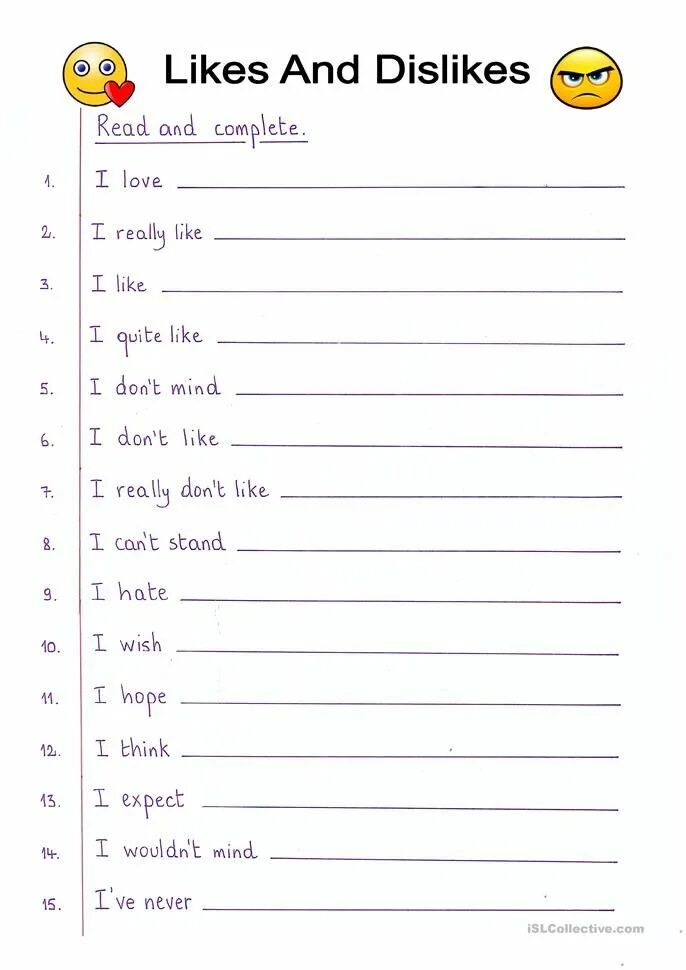 Likes And Dislikes
Read and complete.
1. I love
2. I really like
3. I like
4. I quite like
5. I don't mind
6. I don't like
7. I really don't like
8. I can't stand
9. I hate
10. I wish
11. I hope
12. I think
13. I expect
14. I wouldn't mind
15. I've never
iSLCollective.com